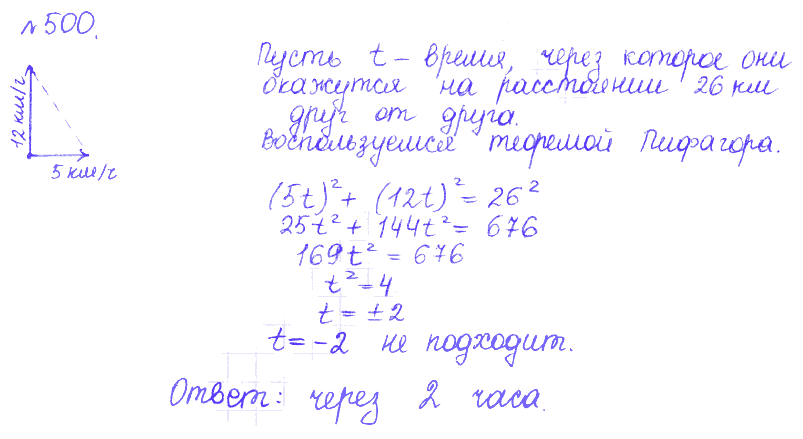 №500.
12 км/г
5 км/г
Пусть t – время, через которое они
окажутся на расстоянии 26 км
друг от друга.
Воспользуемся теоремой Пифагора.
(5t)² + (12t)² = 26²
25t² + 144t² = 676
169t² = 676
t² = 4
t = ±2
t = -2 не подходит.
Ответ: через 2 часа.